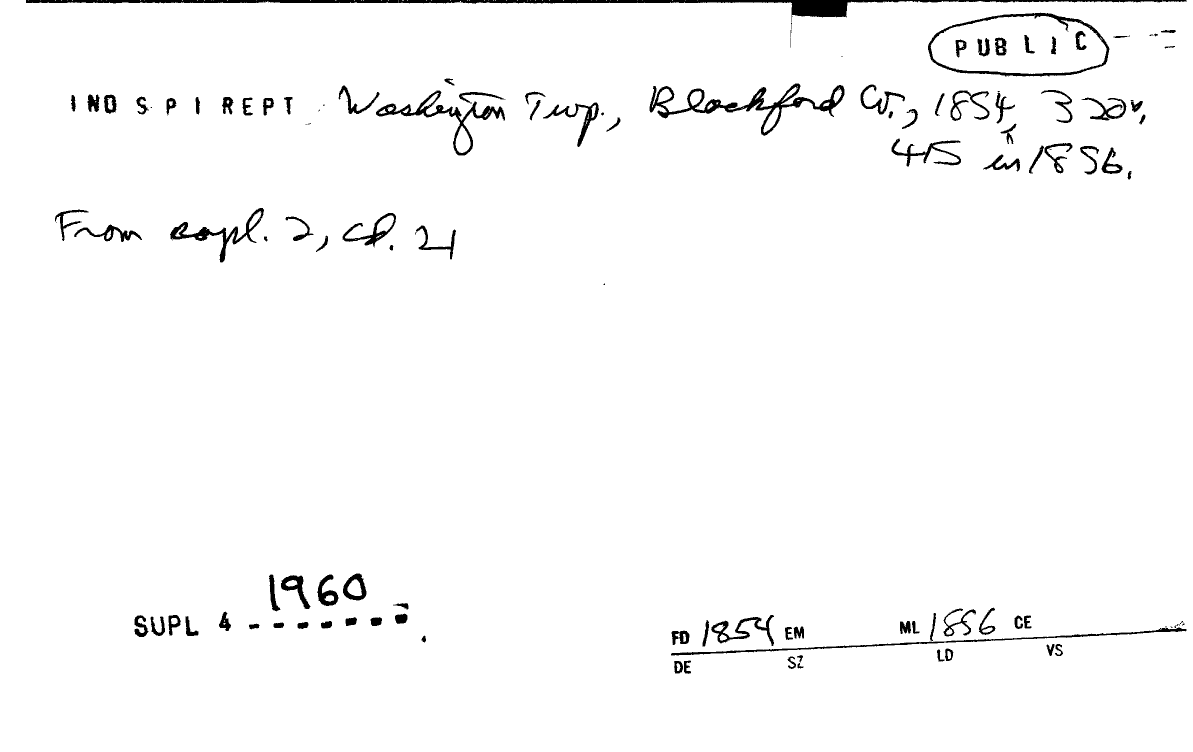 PUBLIC
IND S P I REPT Washington Twp., Blackford Co., 1854, 320v,
415 in 1856.
From supl. 2, cp. 21
1960
SUPL 4 -------
FD 1854 EM ML 1856 CE
DE SZ LD VS